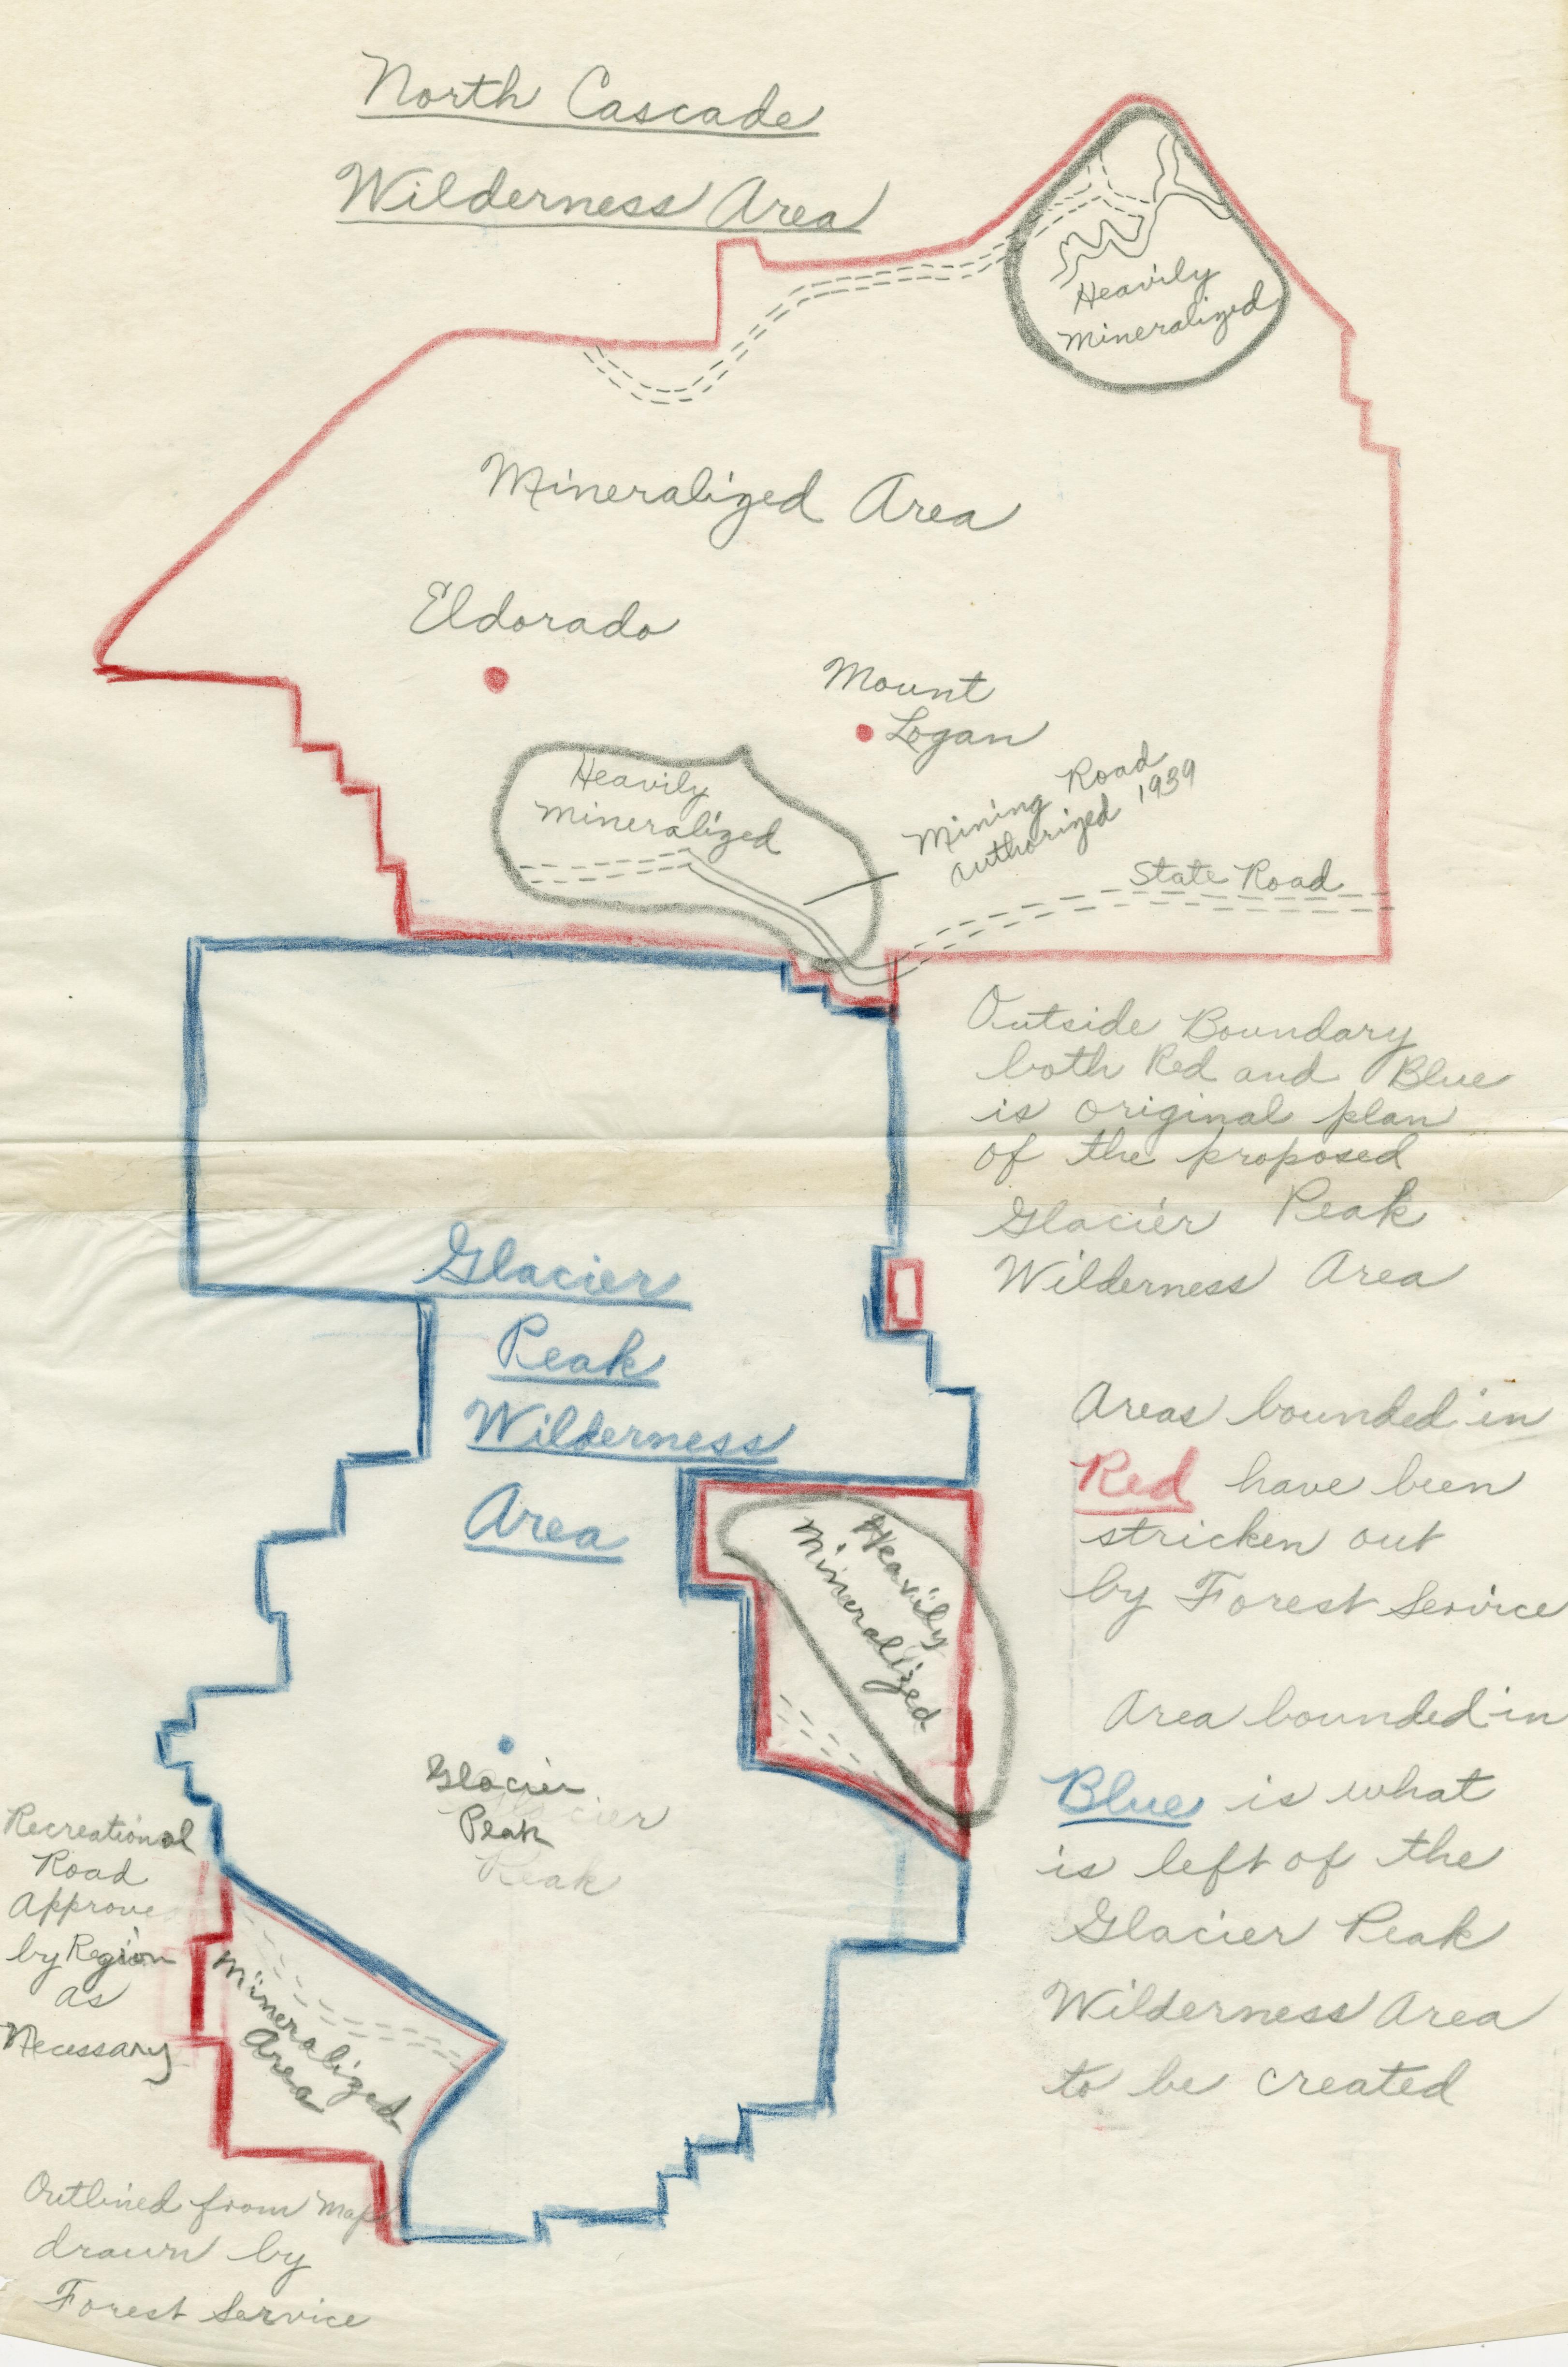 North Cascade
Wilderness Area
Heavily
Mineralized
Mineralized Area
Eldorado
Mount
Logan
Heavily
Mineralized
Mining Road
Authorized 1939
State Road
Outside Boundary
both Red and Blue
is original plan
of the proposed
Glacier Peak
Wilderness Area
Glacier
Peak
Wilderness
Area
Areas bounded in
Red have been
stricken out
by Forest Service
Heavily
Mineralized
Area bounded in
Blue is what
is left of the
Glacier Peak
Wilderness Area
to be created
Glacier
Peak
Glacier
Peak
Recreational
Road
Approve
by Region
as
Necessary
Mineralized
Area
Outlined from Map
drawn by
Forest Service